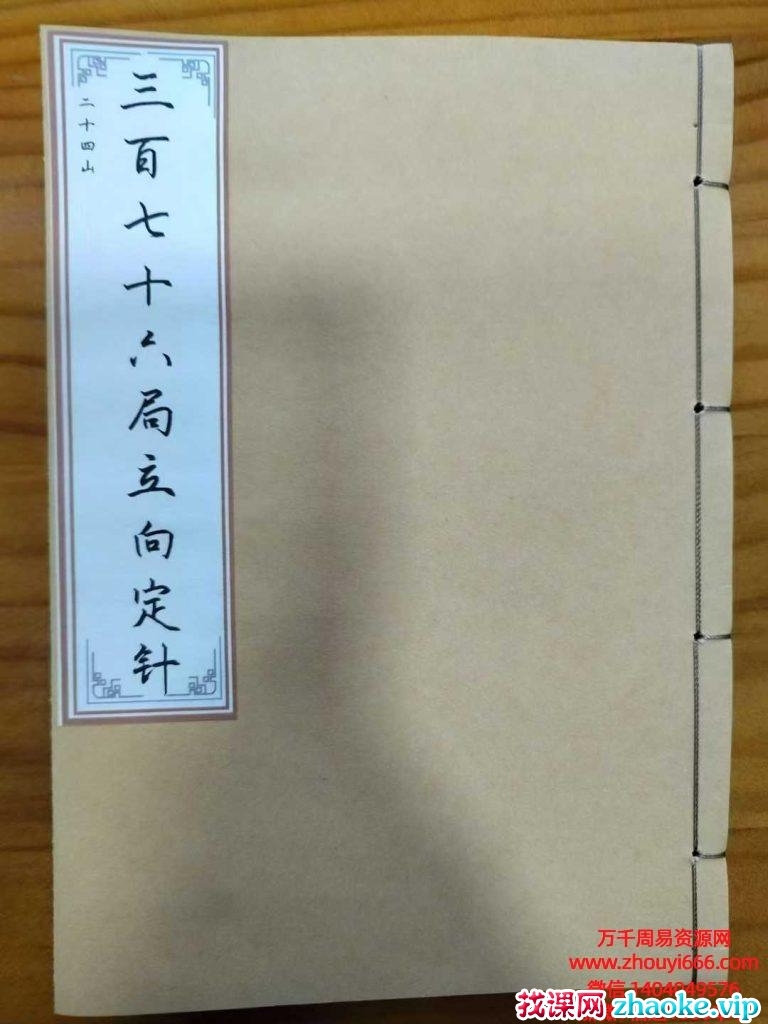 三百七十六局立向定针
二十四山
万千周易资源网
www.zhouyi666.com
微信 1404949576
找课网zhaoke.vip